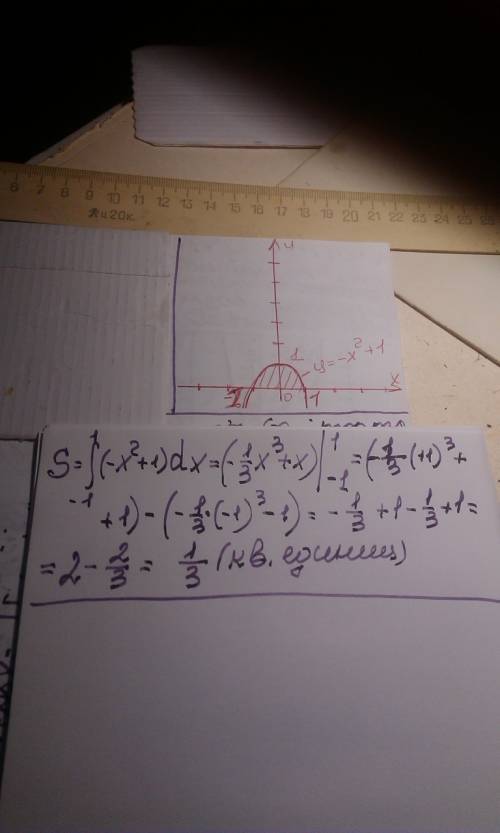 6 7 8 9 10 11 12 13 14 15 16 17 18 19 20 21 22 23 24 25
Ц 20к.
y
1
y=-x²+1
x
-1 0 1
S=∫₋₁¹(-x²+1)dx=(-1/3x³+x)|₋₁¹=(-1/3(+1)³+
+1)-(-1/3·(-1)³-1)=-1/3+1-1/3+1=
=2-2/3= 1/3 (кв. единиц)